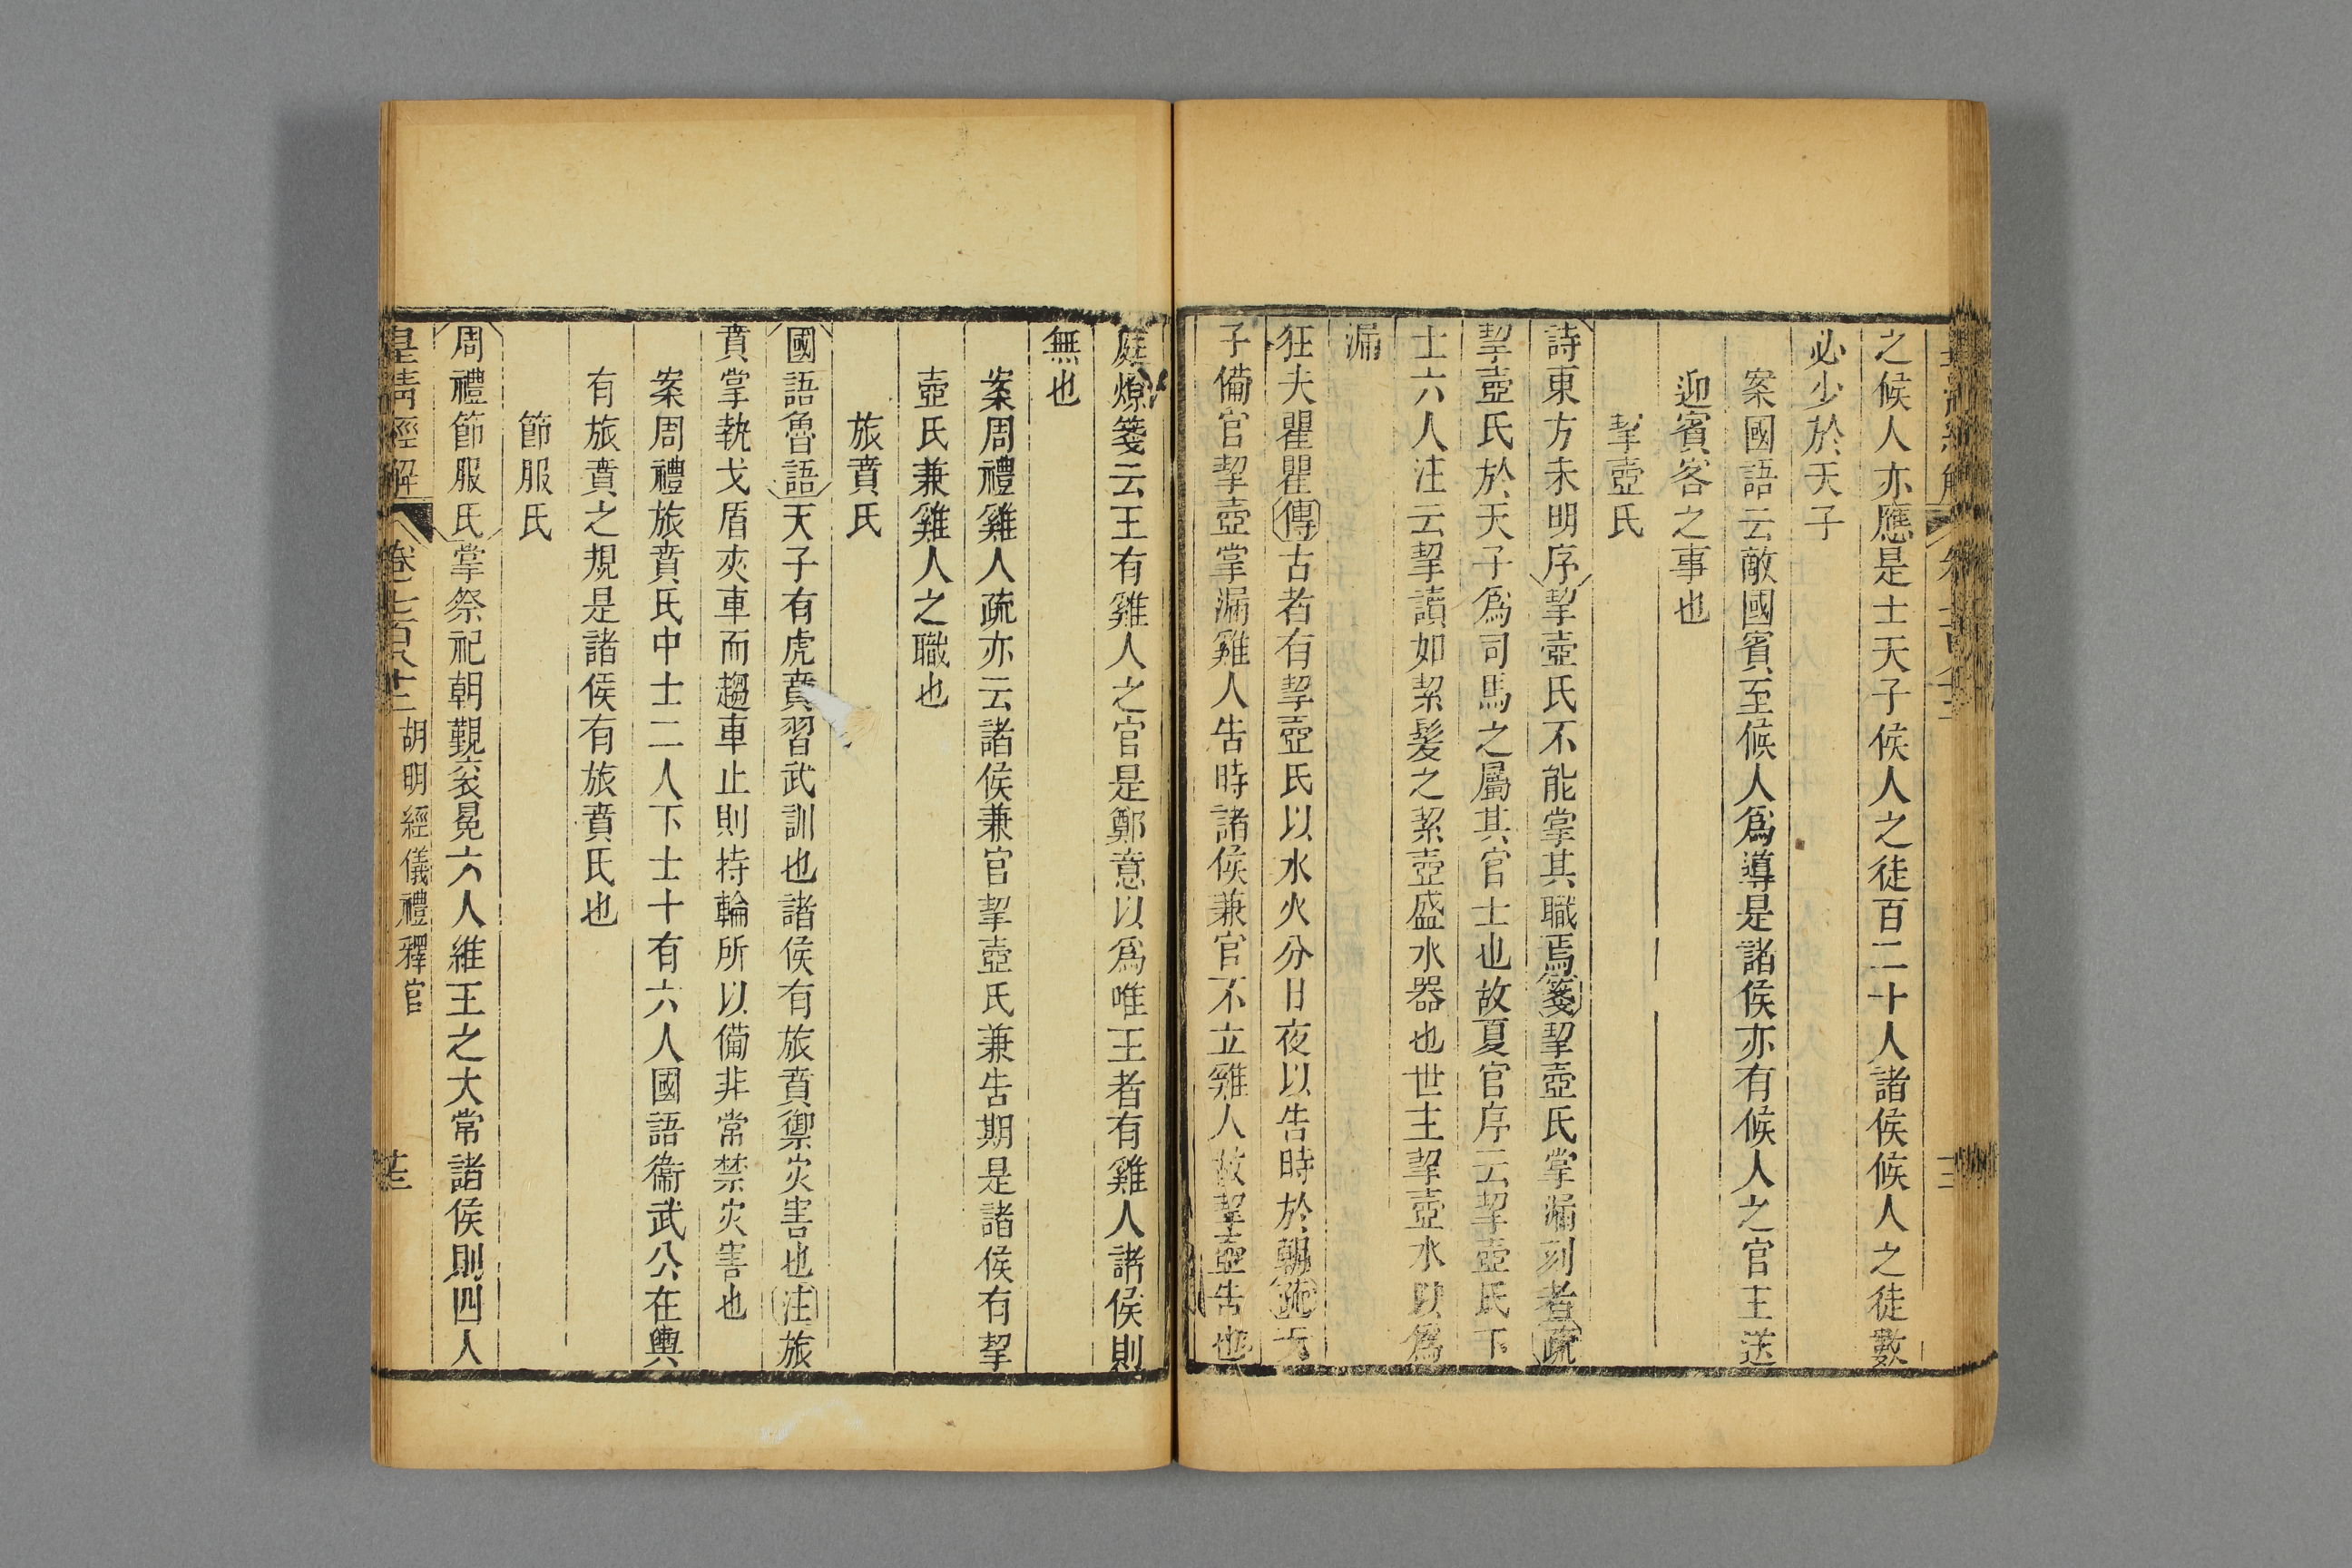 之候人亦應是士天子候人之徒百二十人諸侯候人之徒數
必少於天子
案國語云敵國賓至候人爲導是諸侯亦有候人之官王送
迎賓客之事也
挈壺氏
詩東方未明序挈壺氏不能掌其職焉箋挈壺氏掌漏刻者疏
挈壺氏於天子爲司馬之屬其官士也故夏官序云挈壺氏下
士六人注云挈讀如絜髮之絜壺盛水器也世主挈壺水以爲
漏
狂夫瞿瞿傳古者有挈壺氏以水火分日夜以告時於朝疏天
子備官挈壺掌漏雞人告時諸侯兼官不立雞人故挈壺告也
庭燎箋云王有雞人之官是鄭意以爲唯王者有雞人諸侯則
無也
案周禮雞人疏亦云諸侯兼官挈壺氏兼告期是諸侯有挈
壺氏兼雞人之職也
旅賁氏
國語魯語天子有虎賁習武訓也諸侯有旅賁禦灾害也注旅
賁掌執戈盾夾車而趨車止則持輪所以備非常禁灾害也
案周禮旅賁氏中士二人下士十有六人國語衞武公在輿
有旅賁之規是諸侯有旅賁氏也
節服氏
周禮節服氏掌祭祀朝覲袞冕六人維王之大常諸侯則四人
皇清經解
胡明經儀禮釋官